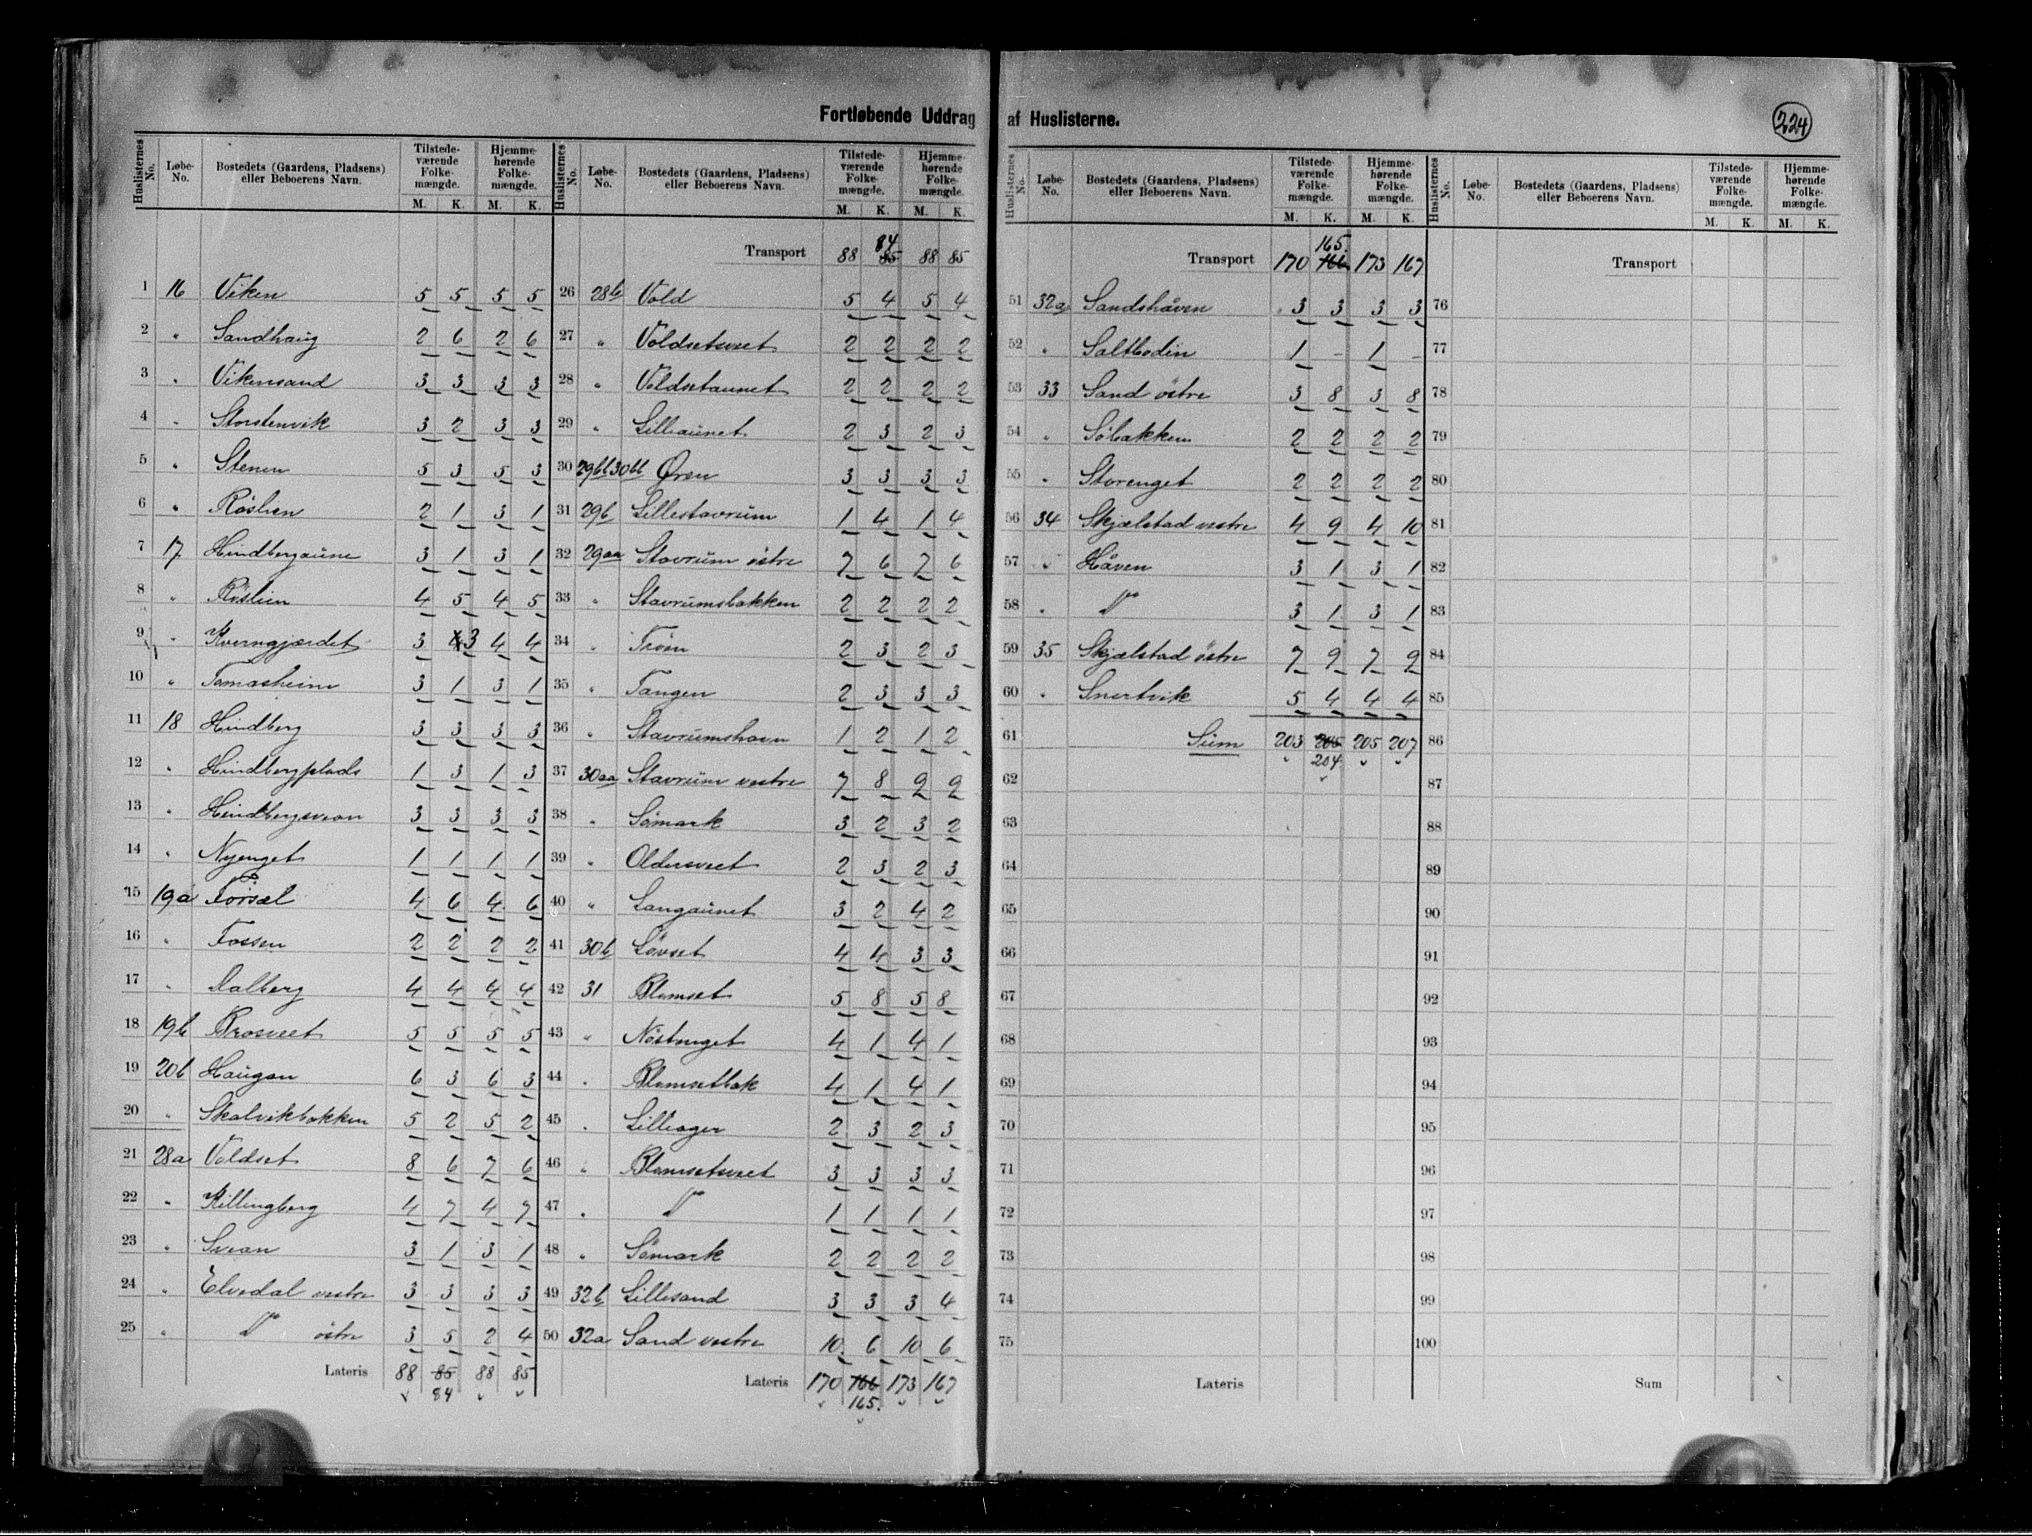 Fortløbende Uddrag af Huslisterne.
224
Huslisternes No. Løbe-No. Bostedets (Gaardens, Pladsens) eller Beboerens Navn. Tilstedeværende Folkemængde. M. K. Hjemmehørende Folkemængde. M. K.
1 16 Viken 5 5 5 5
2 " Sandhaug 2 6 2 6
3 " Vikensand 3 3 3 3
4 " Storstenvik 3 2 3 3
5 " Stenen 5 3 5 3
6 " Röslien 2 1 3 1
7 17 Hindbergaune 3 1 3 1
8 " Röslien 4 5 4 5
9 " Kverngjærdet 3 4 3 4 4
10 " Tomasheim 3 1 3 1
11 18 Hindberg 3 3 3 3
12 " Hindbergplads 1 3 1 3
13 " Hindbergsvean 3 3 3 3
14 " Nyenget 1 1 1 1
15 19a Forsæl 4 6 4 6
16 " Fossen 2 2 2 2
17 " Dalberg 4 4 4 4
18 19b Brosveet 5 5 5 5
19 20b Haugan 6 3 6 3
20 " Skalvikbakken 5 2 5 2
21 28a Voldset 8 6 7 6
22 " Killingberg 4 7 4 7
23 " Svean 3 1 3 1
24 " Elvedal vestre 3 3 3 3
25 " Do östre 3 5 2 4
Lateris 88 85 88 85
84
Huslisternes No. Løbe-No. Bostedets (Gaardens, Pladsens) eller Beboerens Navn. Tilstedeværende Folkemængde. M. K. Hjemmehørende Folkemængde. M. K.
84
Transport 88 85 88 85
26 28b Vold 5 4 5 4
27 " Voldsetsveet 2 2 2 2
28 " Voldsetaunet 2 2 2 2
29 " Lilleaunet 2 3 2 3
30 29bb 30bb Øren 3 3 3 3
31 29b Lillestavrum 1 4 1 4
32 29aa Stavrum östre 7 6 7 6
33 " Stavrumsbakken 2 2 2 2
34 " Tröen 2 3 2 3
35 " Tangen 2 3 3 3
36 " Stavrumshavn 1 2 1 2
37 30aa Stavrum vestre 7 8 9 9
38 " Sömark 3 2 3 2
39 " Oldersveet 2 3 2 3
40 " Langaunet 3 2 4 2
41 30b Lövset 4 4 3 3
42 31 Blomset 5 8 5 8
43 " Nöstenget 4 1 4 1
44 " Blomsetbak 4 1 4 1
45 " Lilleager 2 3 2 3
46 " Blomsetsveet 3 3 3 3
47 " Do 1 1 1 1
48 " Sömark 2 2 2 2
49 32b Lillesand 3 3 3 4
50 32a Sand vestre 10 6 10 6
Lateris 170 166 173 167
165.
Huslisternes No. Løbe-No. Bostedets (Gaardens, Pladsens) eller Beboerens Navn. Tilstedeværende Folkemængde. M. K. Hjemmehørende Folkemængde. M. K.
165.
Transport 170 166 173 167
51 32a Sandshåven 3 3 3 3
52 " Saltbodin 1 - 1 -
53 33 Sand östre 3 8 3 8
54 " Söbakken 2 2 2 2
55 " Storenget 2 2 2 2
56 34 Skjælstad vestre 4 9 4 10
57 " Håven 3 1 3 1
58 " Do 3 1 3 1
59 35 Skjælstad östre 7 9 7 9
60 " Snertvik 5 4 4 4
61 Sum 203 205 205 207
204.
62
63
64
65
66
67
68
69
70
71
72
73
74
75
Lateris
Huslisternes No. Løbe-No. Bostedets (Gaardens, Pladsens) eller Beboerens Navn. Tilstedeværende Folkemængde. M. K. Hjemmehørende Folkemængde. M. K.
Transport
76
77
78
79
80
81
82
83
84
85
86
87
88
89
90
91
92
93
94
95
96
97
98
99
100
Sum